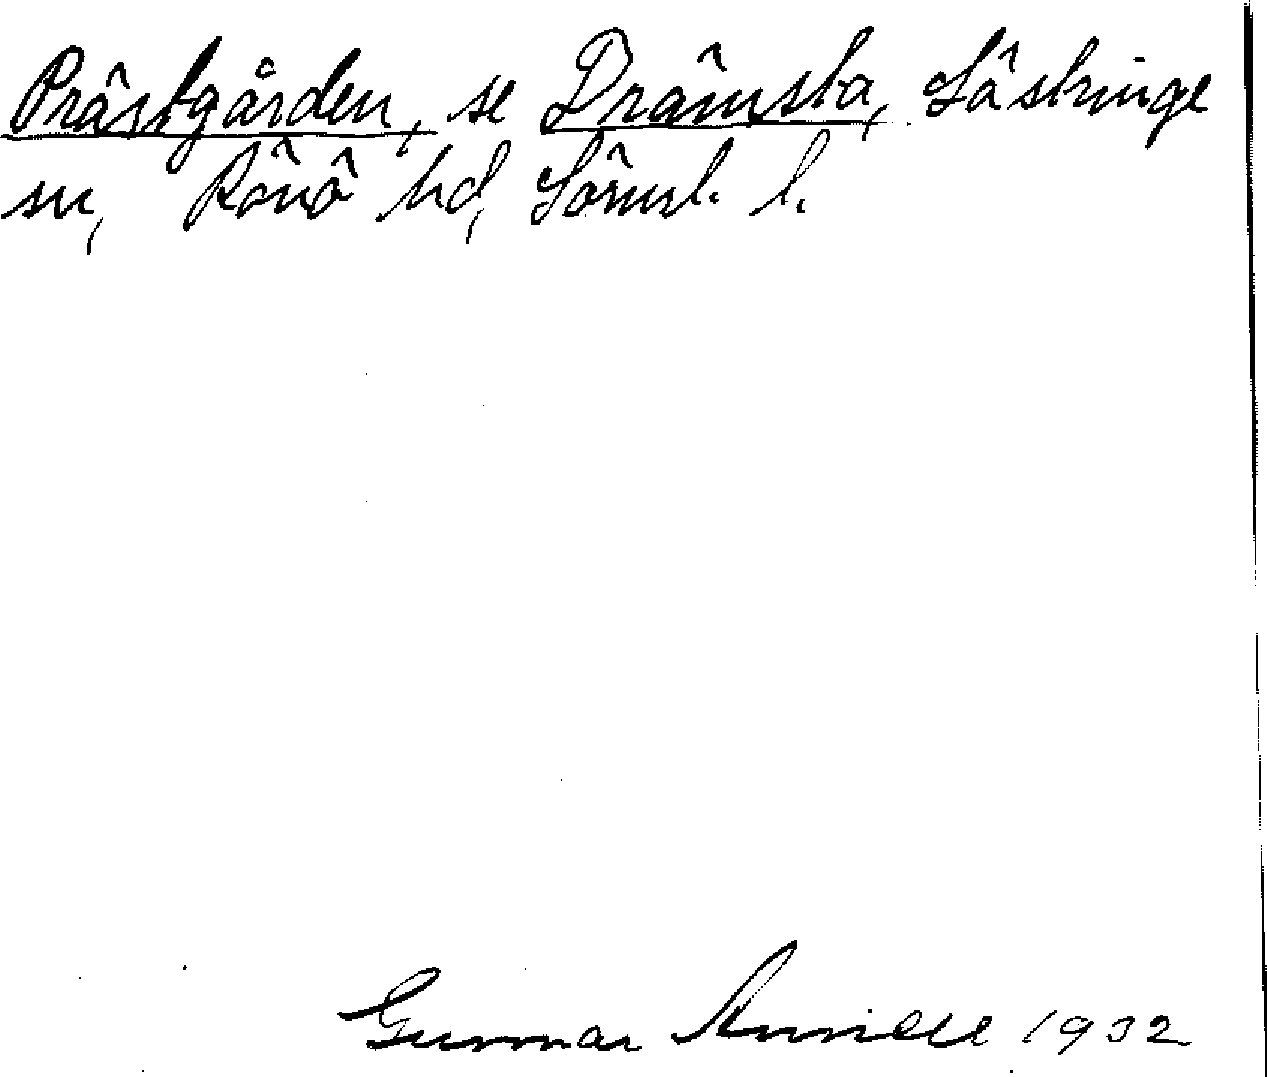 Prästgården, se Drämsta, Lästringe
sn, Rönö hd, Sörml. l.
Gunnar Annell 1932